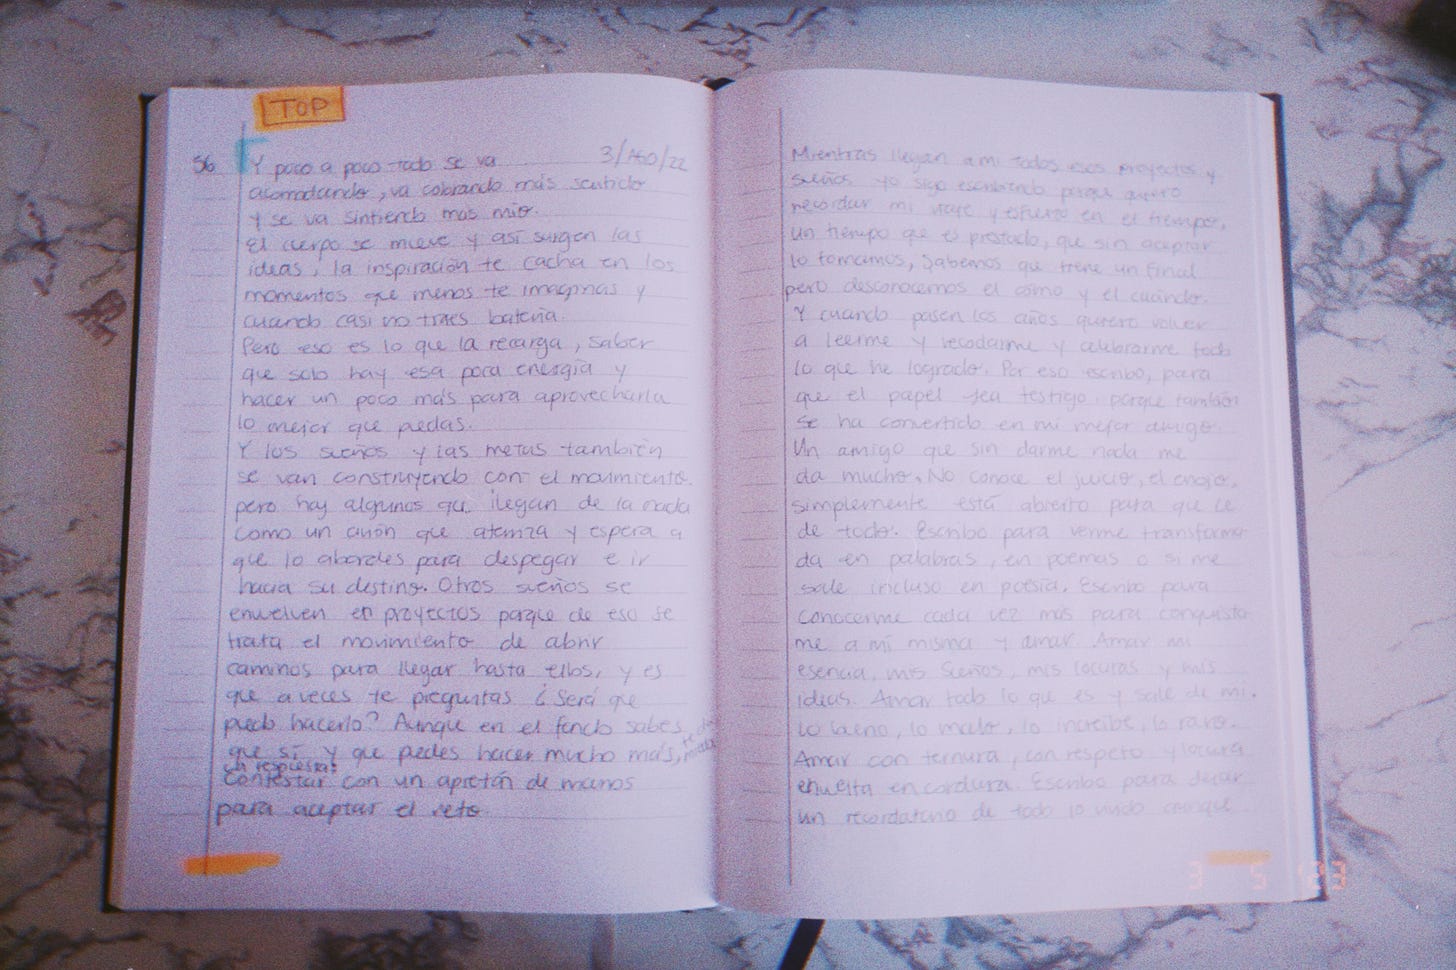 TOP
56
3/AGO/22
Y poco a poco todo se va
acomodando, va cobrando más sentido
Y se va sintiendo mas mio.
El cuerpo se mueve y así surgen las
ideas, la inspiración te cacha en los
momentos que menos te imaginas y
cuando casi no traes batería.
Pero eso es lo que la recarga, saber
que solo hay esa poca energía y
hacer un poco más para aprovecharla
lo mejor que puedas.
Y los sueños y las metas también
se van construyendo con el movimiento.
pero hay algunos que llegan de la nada
como un avión que aterriza y espera a
que lo abordes para despegar e ir
hacia su destino. Otros sueños se
envuelven en proyectos porque de eso se
trata el movimiento de abrir
caminos para llegar hasta ellos, y es
que a veces te preguntas ¿Será que
puedo hacerlo? Aunque en el fondo sabes
que sí y que puedes hacer mucho más,
la respuesta:
Contestar con un apretón de manos
para aceptar el reto.
Mientras llegan a mi todos esos proyectos y
sueños yo sigo escribiendo porque quiero
recordar mi viaje y esfuerzo en el tiempo,
un tiempo que es prestado, que sin aceptar
lo tomamos, Sabemos que tiene un final
pero desconocemos el cómo y el cuándo.
Y cuando pasen los años quiero volver
a leerme y recodarme y celebrarme todo
lo que he logrado. Por eso escribo, para
que el papel sea testigo porque también
se ha convertido en mi mejor amigo.
Un amigo que sin darme nada me
da mucho. No conoce el juicio, el enojo,
simplemente está abierto para que le
de todo. Escribo para verme transforma
da en palabras, en poemas o si me
sale incluso en poesía. Escribo para
conocerme cada vez más para conquista
me a mí misma y amar. Amar mi
esencia, mis sueños, mis locuras y mis
ideas. Amar todo lo que es y sale de mi.
Lo bueno, lo malo, lo increíble, lo raro.
Amar con ternura, con respeto y locura
envuelta en cordura. Escribo para dejar
un recordatorio de todo lo vivido aunque
3 5 '23